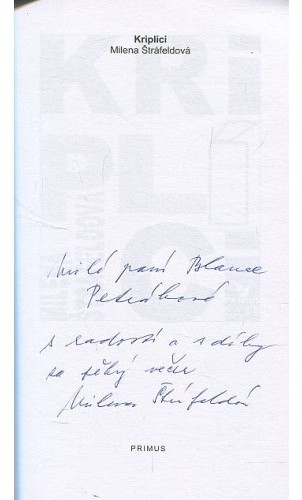 Kriplíci
Milena Štráfeldová
KRI
PLÍ
CI
Milé paní Blance
Petrákové
s radostí a s díky
za pěkný večer
Milena Štráfeldová
PRIMUS